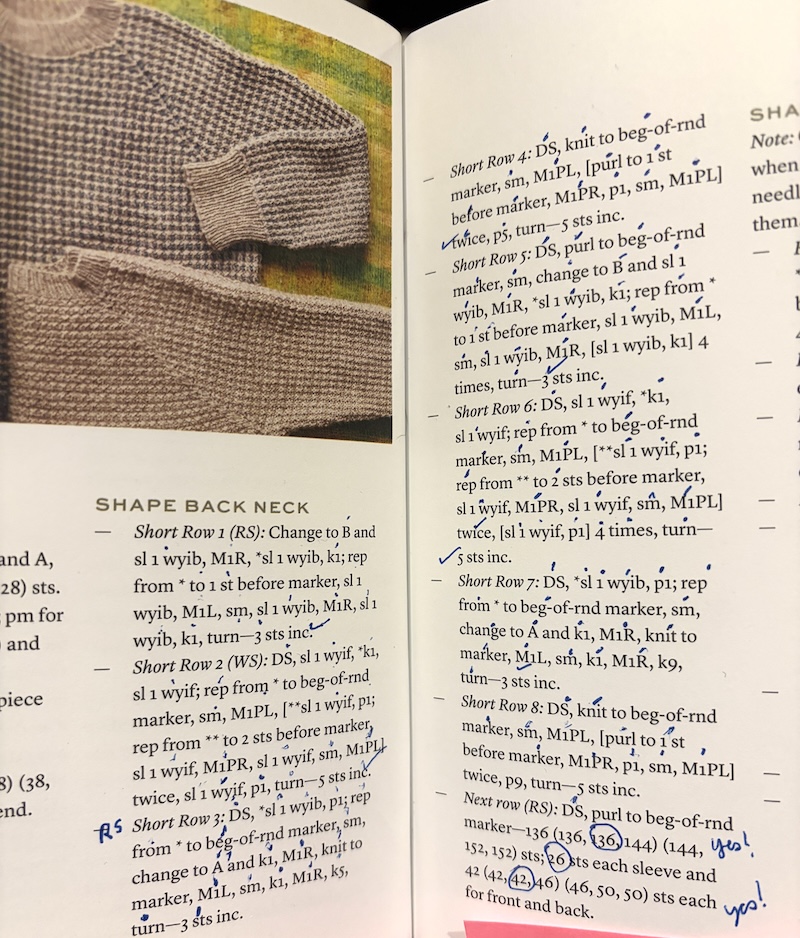 and A,
28) sts.
; pm for
) and
piece
8) (38,
end.
SHAPE BACK NECK
— Short Row 1 (RS): Change to B and
sl 1 wyib, M1R, *sl 1 wyib, k1; rep
from * to 1 st before marker, sl 1
wyib, M1L, sm, sl 1 wyib, M1R, sl 1
wyib, k1, turn—3 sts inc.
— Short Row 2 (WS): DS, sl 1 wyif, *k1,
sl 1 wyif; rep from * to beg-of-rnd
marker, sm, M1PL, [**sl 1 wyif, p1;
rep from ** to 2 sts before marker,
sl 1 wyif, M1PR, sl 1 wyif, sm, M1PL]
twice, sl 1 wyif, p1, turn—5 sts inc.
RS Short Row 3: DS, *sl 1 wyib, p1; rep
from * to beg-of-rnd marker, sm,
change to A and k1, M1R, knit to
marker, M1L, sm, k1, M1R, k5,
turn—3 sts inc.
— Short Row 4: DS, knit to beg-of-rnd
marker, sm, M1PL, [purl to 1 st
before marker, M1PR, p1, sm, M1PL]
twice, p5, turn—5 sts inc.
— Short Row 5: DS, purl to beg-of-rnd
marker, sm, change to B and sl 1
wyib, M1R, *sl 1 wyib, k1; rep from *
to 1 st before marker, sl 1 wyib, M1L,
sm, sl 1 wyib, M1R, [sl 1 wyib, k1] 4
times, turn—3 sts inc.
— Short Row 6: DS, sl 1 wyif, *k1,
sl 1 wyif; rep from * to beg-of-rnd
marker, sm, M1PL, [**sl 1 wyif, p1;
rep from ** to 2 sts before marker,
sl 1 wyif, M1PR, sl 1 wyif, sm, M1PL]
twice, [sl 1 wyif, p1] 4 times, turn—
5 sts inc.
— Short Row 7: DS, *sl 1 wyib, p1; rep
from * to beg-of-rnd marker, sm,
change to A and k1, M1R, knit to
marker, M1L, sm, k1, M1R, k9,
turn—3 sts inc.
— Short Row 8: DS, knit to beg-of-rnd
marker, sm, M1PL, [purl to 1 st
before marker, M1PR, p1, sm, M1PL]
twice, p9, turn—5 sts inc.
— Next row (RS): DS, purl to beg-of-rnd
marker—136 (136, 136, 144) (144, yes!
152, 152) sts; 26 sts each sleeve and
42 (42, 42, 46) (46, 50, 50) sts each yes!
for front and back.
SHA
Note:
when
needl
them